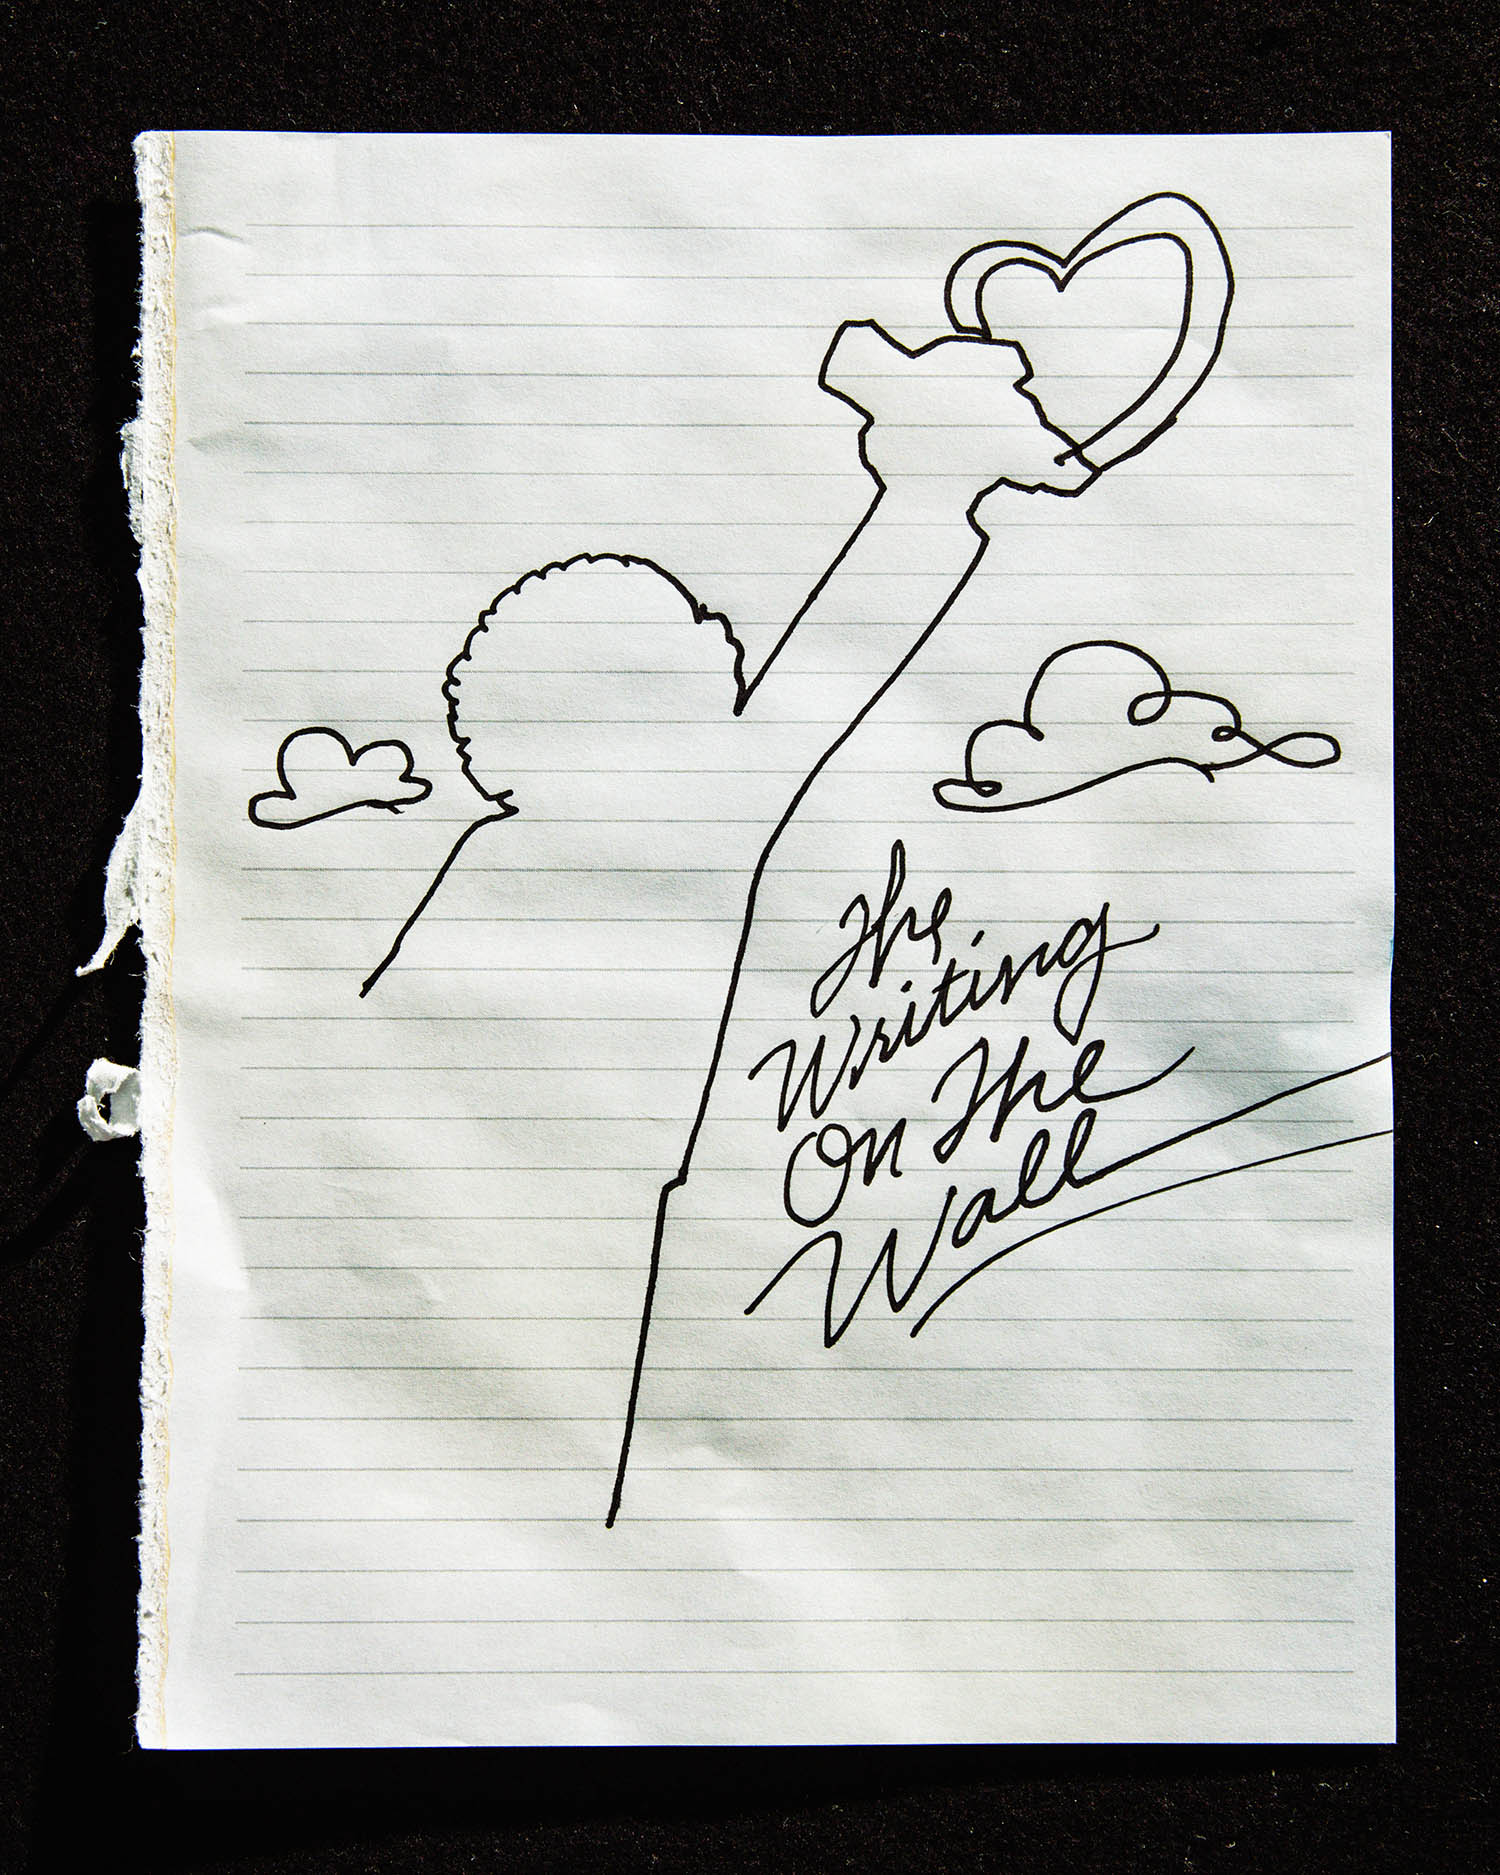 The
Writing
On The
Wall